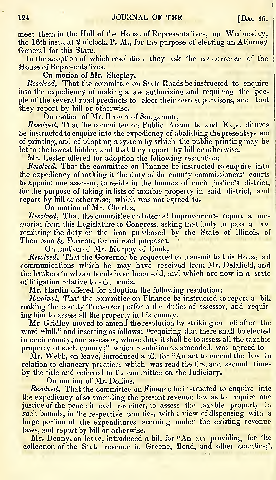 124 JOURNAL OF THE [Dec. 16.
meet them in the Hall of the House of Representatives, on Wednesday,
the 16th inst., at 2 o'clock, P. M., for the purpose of electing an Attorney
General for this State.
In the adoption of which resolution they ask the concurrence of the
House of Representatives.
On motion of Mr. Shepley,
Resolved, That the committee on State Roads be instructed to enquire
into the expediency of making a law authorizing and requiring the peo-
ple of the several road precincts to elect their own supervisors, and that
they report by bill or otherwise.
On motion of Mr. Brown of Sangamon,
Resolved, That the committee on Public Accounts and Expenditures
be instructed to enquire into the expediency of abolishing the present system
of printing, and of adopting a system by which the public printing may be
let to the lowest bidder, and that they report by bill or otherwise.
Mr. Lester offered for adoption the following resolution:
Resolved, That the committee on Finance be instructed to enquire into
the expediency of making it the duty of the county commissioners' courts
to appoint one assessor, to reside in the bounds of each justice's district,
for the purpose of taking in lists of taxable property in said district, and
report by bill or otherwise; which was not agreed to.
On motion of Mr. Charles,
Resolved, That the committee on Internal Improvements report a me-
morial from this Legislature to Congress, asking that body to pass a law
remitting the duty on the iron purchased by the State of Illinois, of
Thompson & Forman, for railroad purposes.
On motion of Mr. Murphy of Cook,
Resolved, That the Governor be requested to transmit to this House all
communications which he may have received from Mr. Delafield, and
the brokers to whom bonds have been sold, and which are now in a state
of litigation relative to said bonds.
Mr. Hardin offered for adoption the following resolution:
Resolved, That the committee on Finance be instructed to report a bill
making the county Treasurer perform the duties of assessor, and requir-
ing him to assess all the property in his county.
Mr. Gridley moved to amend the resolution by striking out all after the
word "bill" and inserting as follows: "requiring that there shall be elected
in each county, one assessor, whose duty it shall be to assess all the taxable
property of such county;" which resolution as amended, was agreed to.
Mr. Webb, on leave, introduced a bill, for "An act to amend the law in
relation to chancery practice;" which was read the first and second times
by the title and referred to the committee on the Judiciary.
On motion of Mr. Dollins,
Resolved, That the committee on Finance be instructed to enquire into
the expediency of so amending the present revenue law as to require one
justice of the peace in each precinct, to assess the taxable property in
such bounds, in the respective counties, with a view of dispensing with a
large portion of the expenditures accruing under the existing revenue
laws, and report by bill or otherwise.
Mr. Denny, on leave, introduced a bill, for "An act providing for the
collection of the State revenue in Greene, Bond, and other counties;"